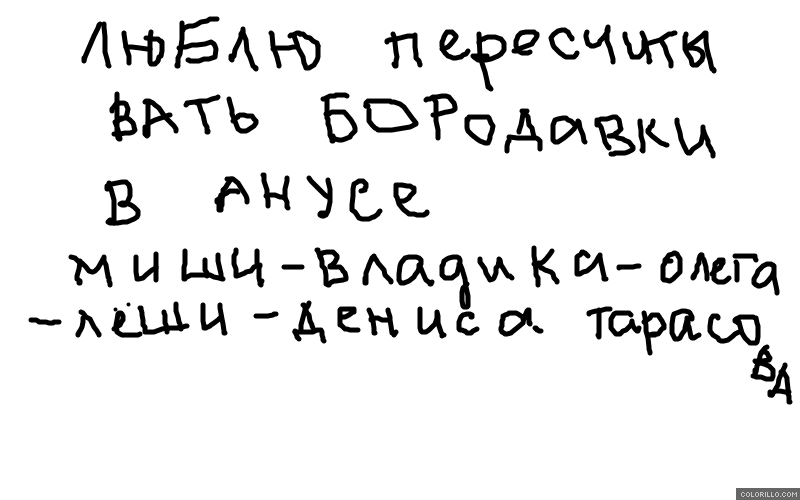 люБлю пересчиты
ВАТЬ БОРОДаВКИ
В АНУСЕ
миши-Владика-олега
-лёши-Дениса Тарасо
ВА
COLORILLO.COM